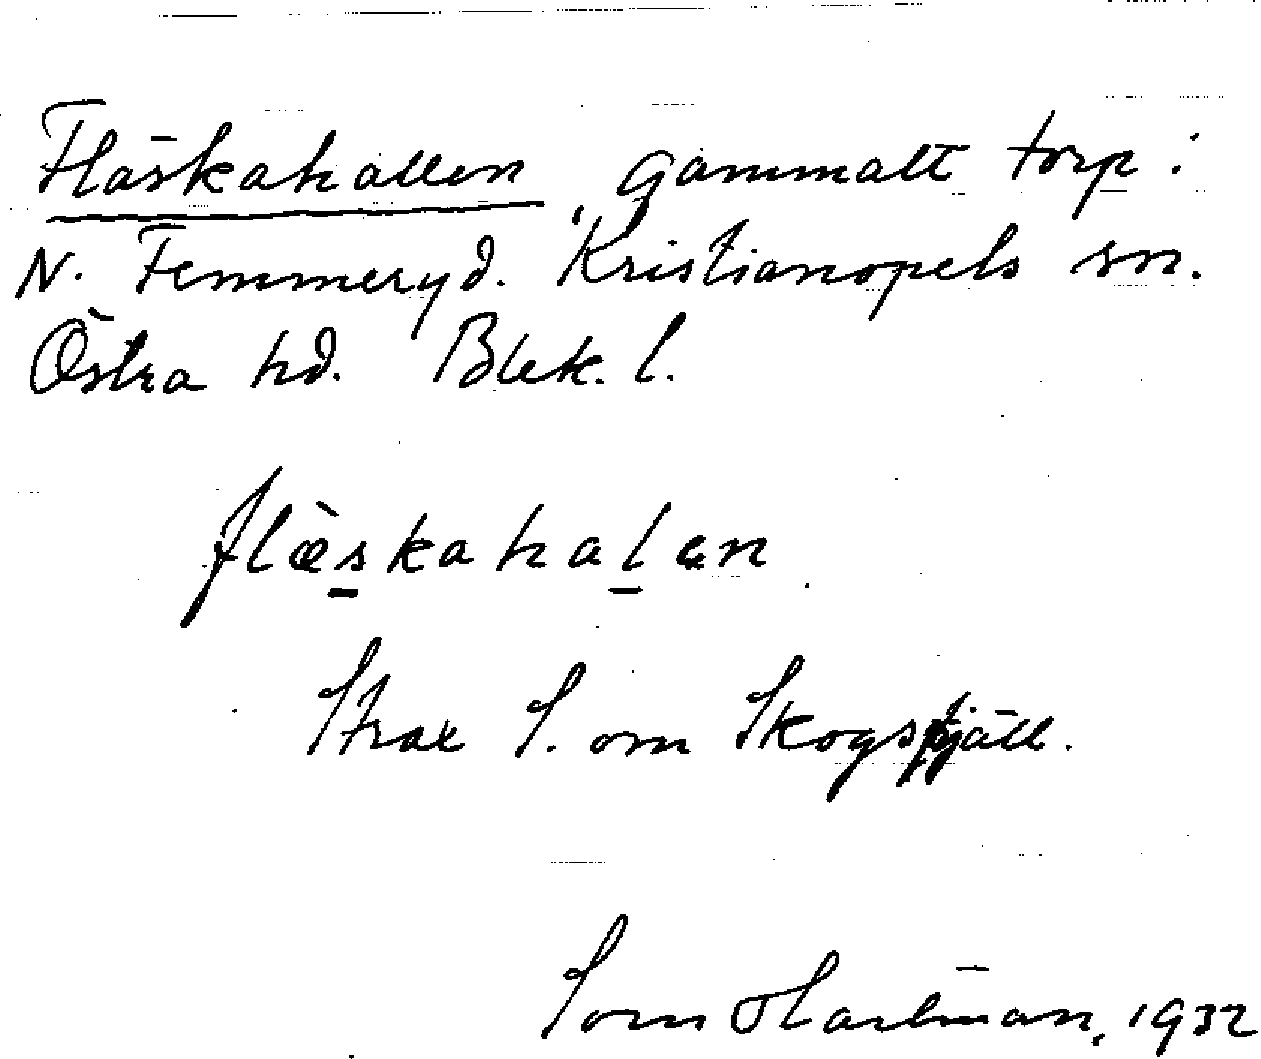 Fläskahallen, gammalt torp i
N. Femmeryd. Kristianopels sn.
Östra hd. Blek. l.
flæ̀skahalən
Strax S. om Skogstjäll.
Torm Hartman, 1932